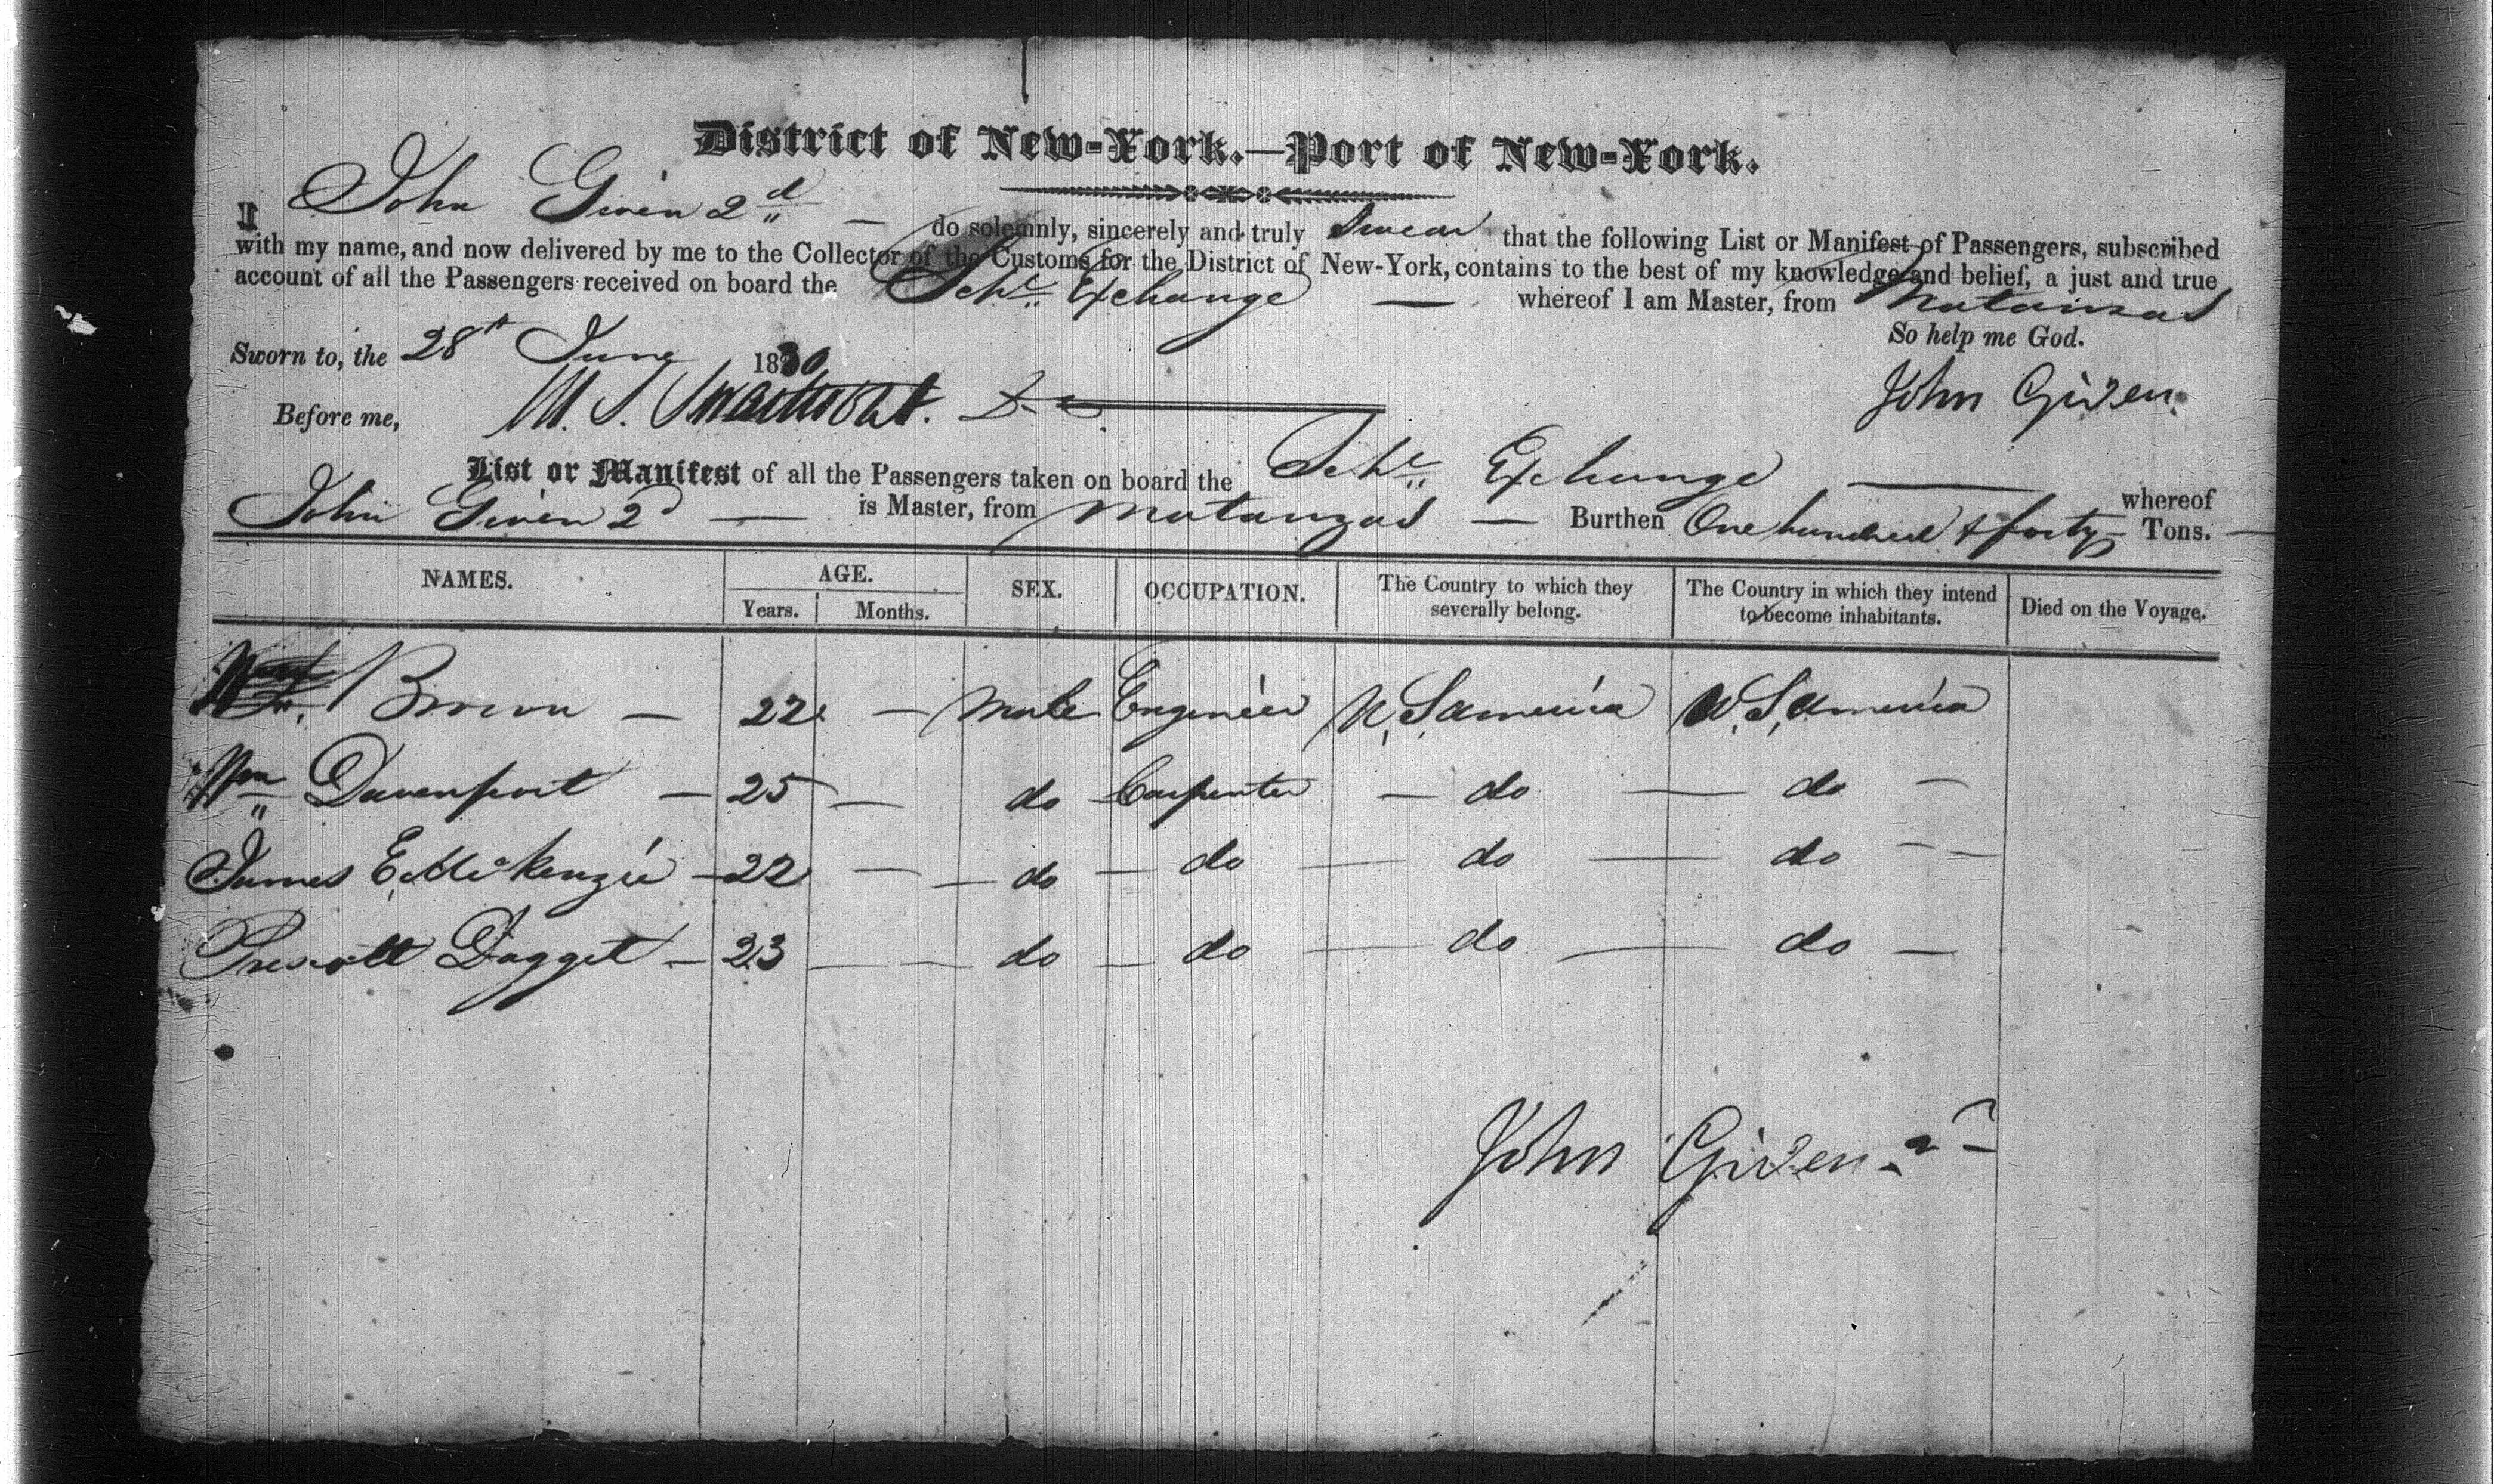 District of New-York.—Port of New-York.
I John Given 2d — do solemnly, sincerely and truly swear that the following List or Manifest of Passengers, subscribed
with my name, and now delivered by me to the Collector of the Customs for the District of New-York, contains to the best of my knowledge and belief, a just and true
account of all the Passengers received on board the Schr. Exchange — whereof I am Master, from Matanzas
So help me God.
Sworn to, the 28th June 1830
John Given
Before me, M. S. Swartwout.
List or Manifest of all the Passengers taken on board the Schr. Exchange — whereof
John Given 2d — is Master, from Matanzas — Burthen One hundred & forty — Tons.
NAMES. AGE. SEX. OCCUPATION. The Country to which they severally belong. The Country in which they intend to become inhabitants. Died on the Voyage.
Years. Months.
Brown — 22 — Male Engineer U.S. America U.S. America
Wm Davenport — 25 — do Carpenter — do — do —
James E. McKenzie — 22 — do — do — do — do —
Prescott Dagget — 23 — do — do — do — do —
John Given 2d